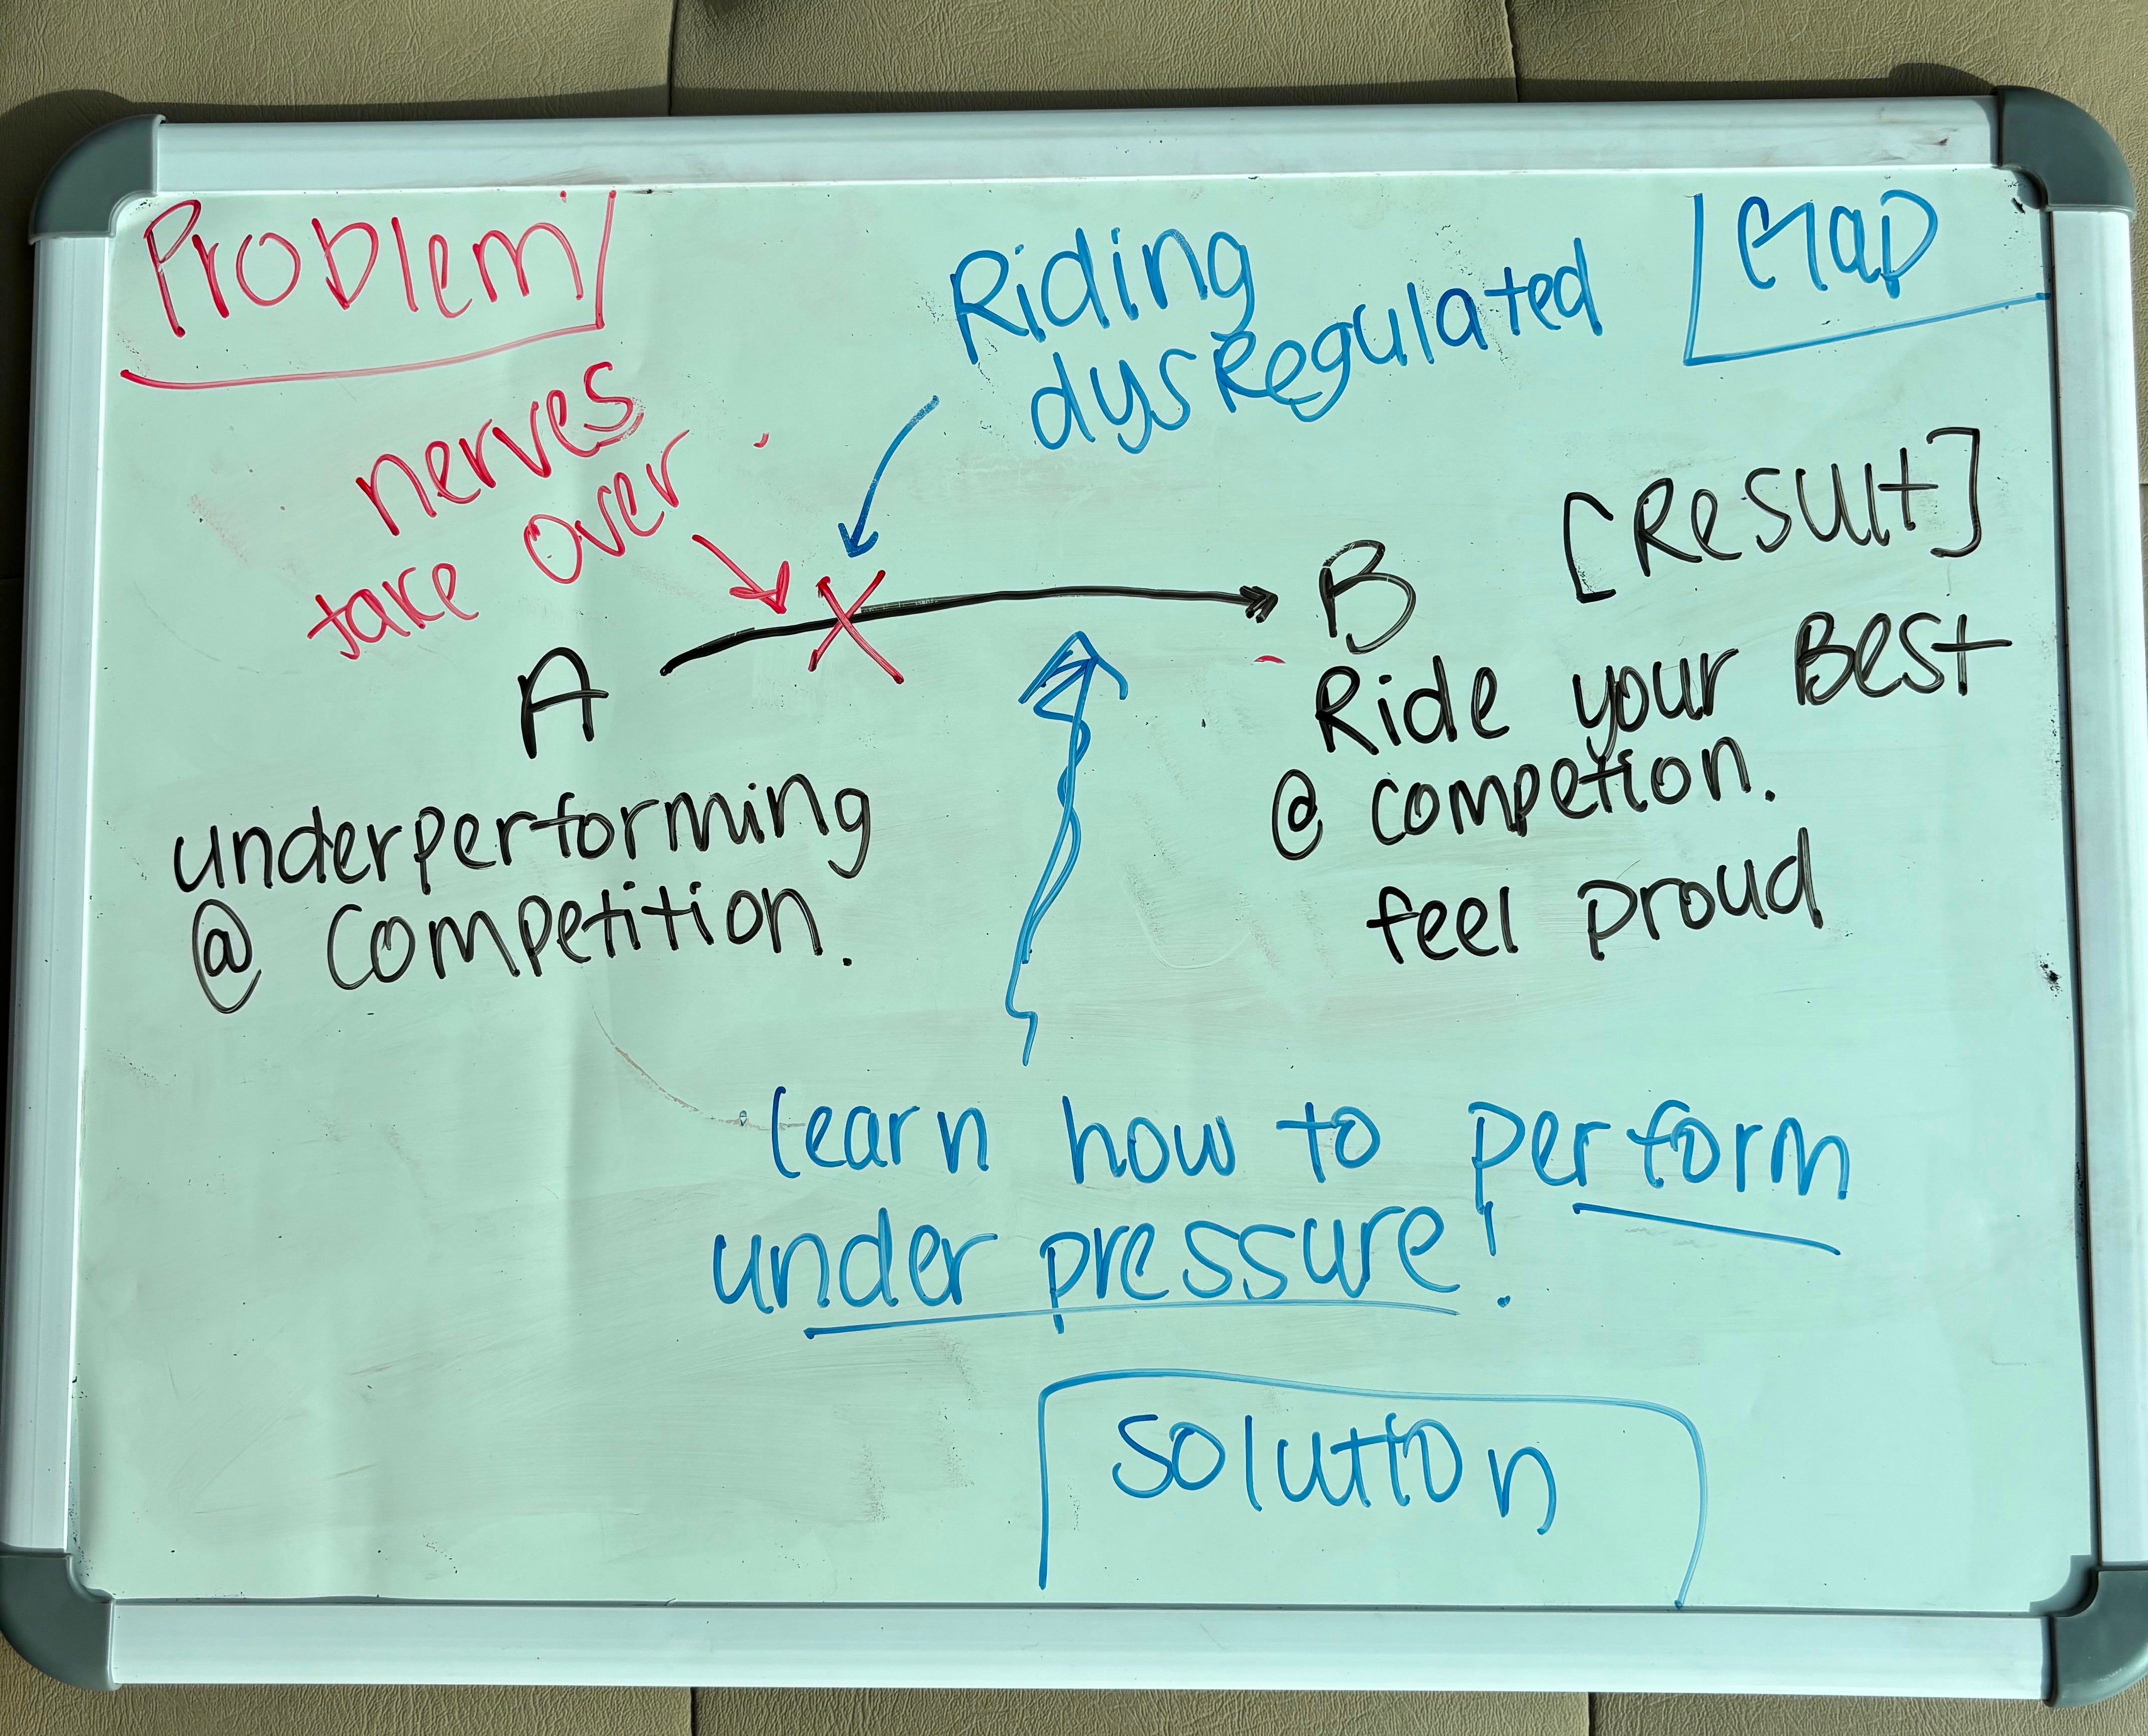 Problem
Riding
dysregulated
Map
nerves
take over
[Result]
A
B
X
underperforming
@ competition.
Ride your Best
@ competion.
feel proud
learn how to perform
under pressure!
solution